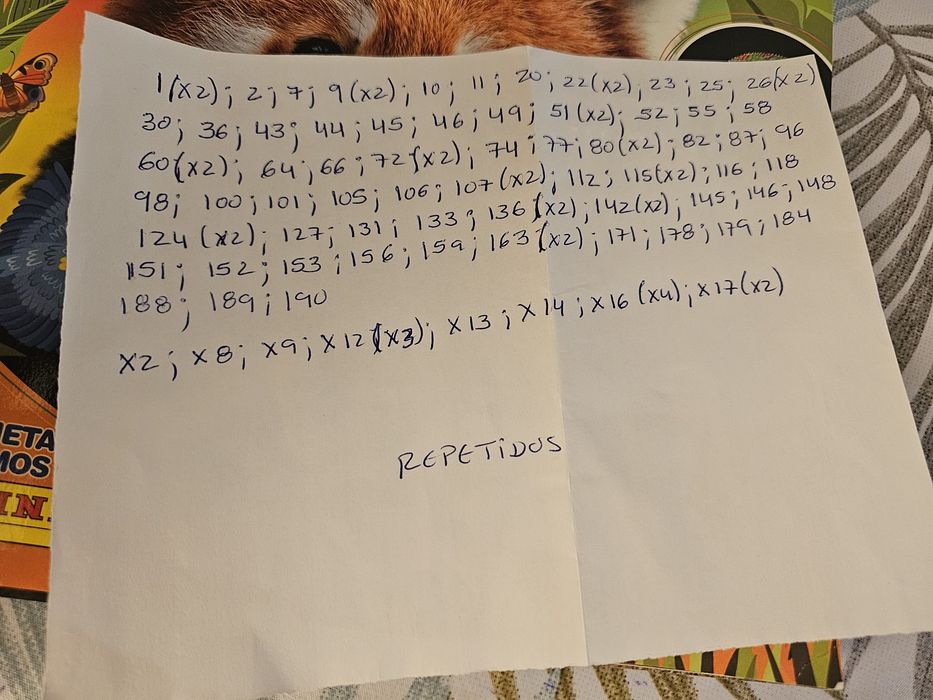 1(x2); 2; 7; 9(x2); 10; 11; 20; 22(x2); 23; 25; 26(x2)
30; 36; 43; 44; 45; 46; 49; 51(x2); 52; 55; 58
60(x2); 64; 66; 72(x2); 74; 77; 80(x2); 82; 87; 96
98; 100; 101; 105; 106; 107(x2); 112; 115(x2); 116; 118
124(x2); 127; 131; 133; 136(x2); 142(x2); 145; 146; 148
151; 152; 153; 156; 159; 163(x2); 171; 178; 179; 184
188; 189; 190
X2; X8; X9; X12(x3); X13; X14; X16(x4); X17(x2)
REPETIDOS
ETA
MOS
IN